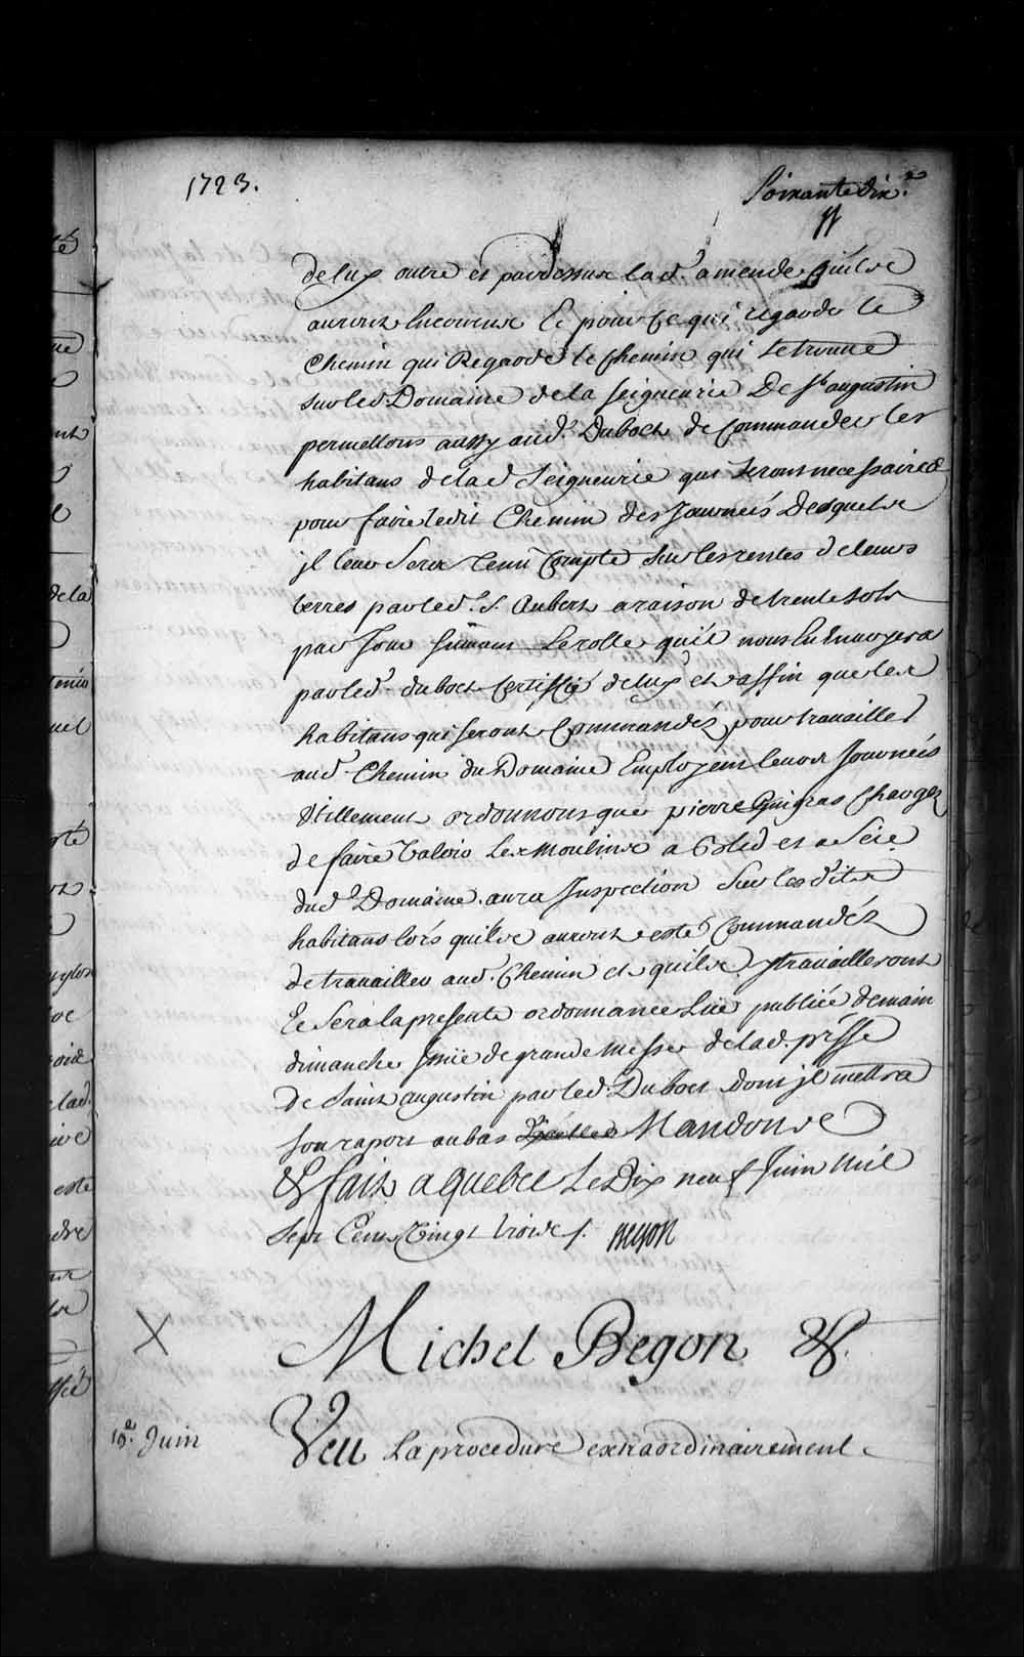 1723.
Soixante dix.e
de luy outre et pardessus lad. amende quils
auront Encourue Et pour Ce qui regarde le
Chemin qui Regarde le Chemin qui se trouve
sur led Domaine de la seigneurie De St augustin
permettons aussy aud. Duboct de Commander les
habitans de lad Seigneurie qui seront necessaires
pour faire ledit Chemin des Journeés Desquelles
jl leur sera tenu Compte sur les rentes de leurs
terres par led. S. Aubert a raison de trente sols
par Jour suivant Le rolle qu'il nous En envoyera
par led. duboct Certiffié de luy et affin que les
habitans qui seront Commandéz pour travailler
aud Chemin du Domaine Employent leurs Journeés
Utillement ordonnons que pierre Gingras Chargé
de faire Valoir Les moulins a bled et a Scie
dud Domaine aura Inspection Sur les dits
habitans lors quils auront esté Commandéz
de travailler aud. Chemin et quils y travailleront
Et Sera la presente ordonnance Lüe publiée demain
dimanche jssüe de grande Messe de lad. p̃sse
De Saint augustin par led. Duboct dont jl mettra
son raport au bas Mandons
&c fait a quebec Le Dix neuf Juin mil
sept Cens Vingt trois /. Begon
Michel Begon &c.
19.e Juin
Veu La procedure extraordinairement